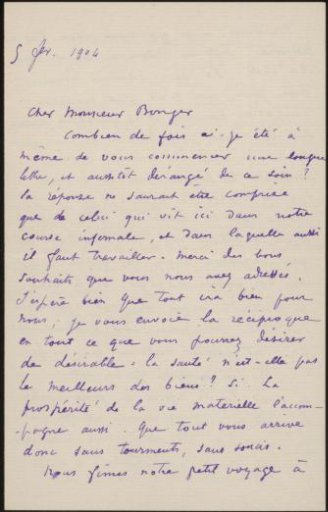 5 fev. 1904
Cher Monsieur Bonger
Combien de fois ai-je été à
même de vous commencer une longue
lettre, et aussitôt derangé de ce soin?
la réponse ne saurait être comprise
que de celui qui vit ici dans notre
course infernale, et dans laquelle aussi
il faut travailler. Merci des bons
souhaits que vous nous avez adressés.
J'espère bien que tout ira bien pour
nous; je vous envoie la réciproque
en tout ce que vous pouvez désirer
de désirable - la santé n'est-elle pas
le meilleurs des biens? Si. La
prospérité de la vie materielle l'accom-
-pagne aussi. Que tout vous arrive
donc sans tourments, sans soucis.
Nous fîmes notre petit voyage à